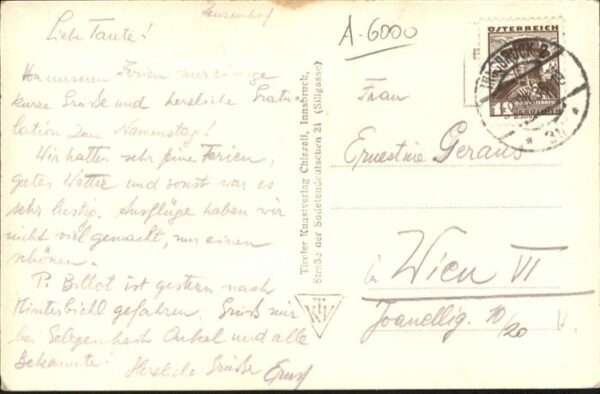 Liebe Tante!
Von unseren Ferien nur einige
kurze Grüße und herzliche Gratu-
lation zum Namenstag!
Wir hatten sehr feine Ferien,
gutes Wetter und sonst war es
sehr lustig. Ausflüge haben wir
nicht viel gemacht, nur einen
schönen.
P. Billot ist gestern nach
Hinterbichl gefahren. Grüß mir
bei Gelegenheit Onkel und alle
Bekannte! Herzliche Grüße Ernst
Tiroler Kunstverlag Chizzali, Innsbruck,
Straße der Sudetendeutschen 21 (Sillgasse)
A-6000
ÖSTERREICH
INNSBRUCK 2
Frau
Ernestine Geraus
in Wien VI
Joanellig. 10/20 V.